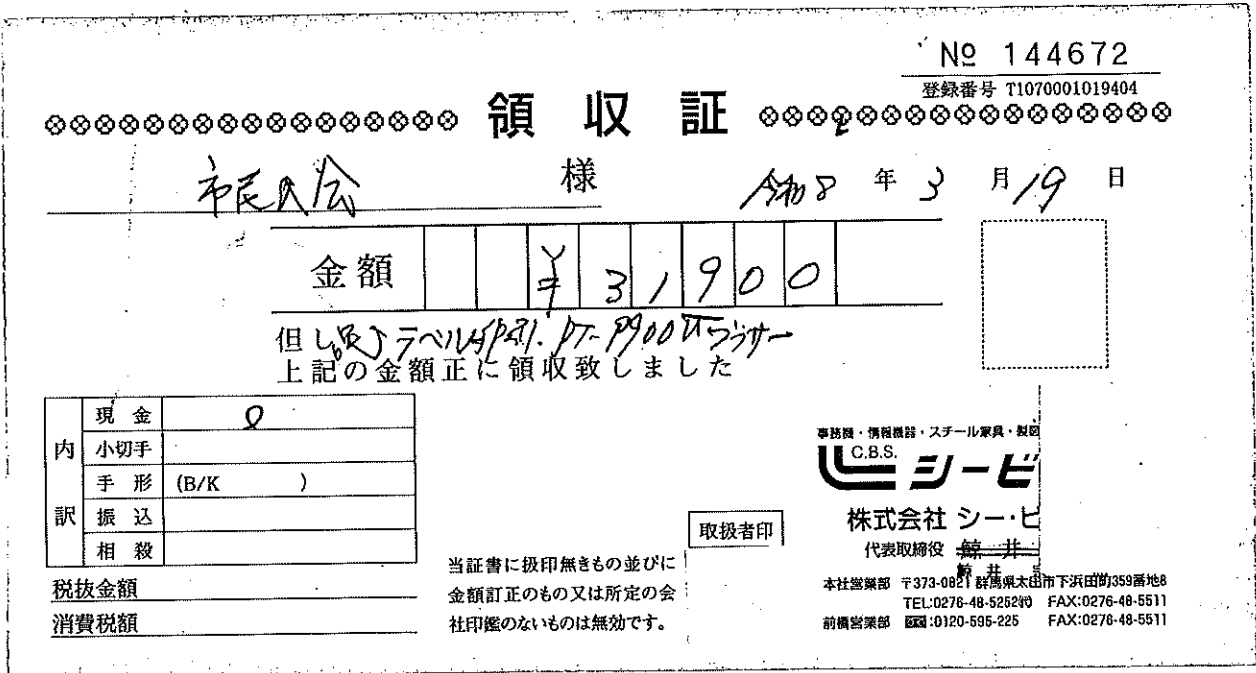 № 144672
登録番号 T1070001019404
領収証
市民の会 様 令和8年3月19日
金額 ¥31900
但し ラベル PT-P900
上記の金額正に領収致しました
内訳
現金
小切手
手形 (B/K )
振込
相殺
税抜金額
消費税額
当証書に扱印無きもの並びに
金額訂正のもの又は所定の会
社印鑑のないものは無効です。
取扱者印
事務機・情報機器・スチール家具・製図
C.B.S. シービ
株式会社 シー・ビ
代表取締役 鯨井
鯨井
本社営業部 〒373-0821 群馬県太田市下浜田町359番地8
TEL:0276-48-5252㈹ FAX:0276-48-5511
前橋営業部 :0120-595-225 FAX:0276-48-5511